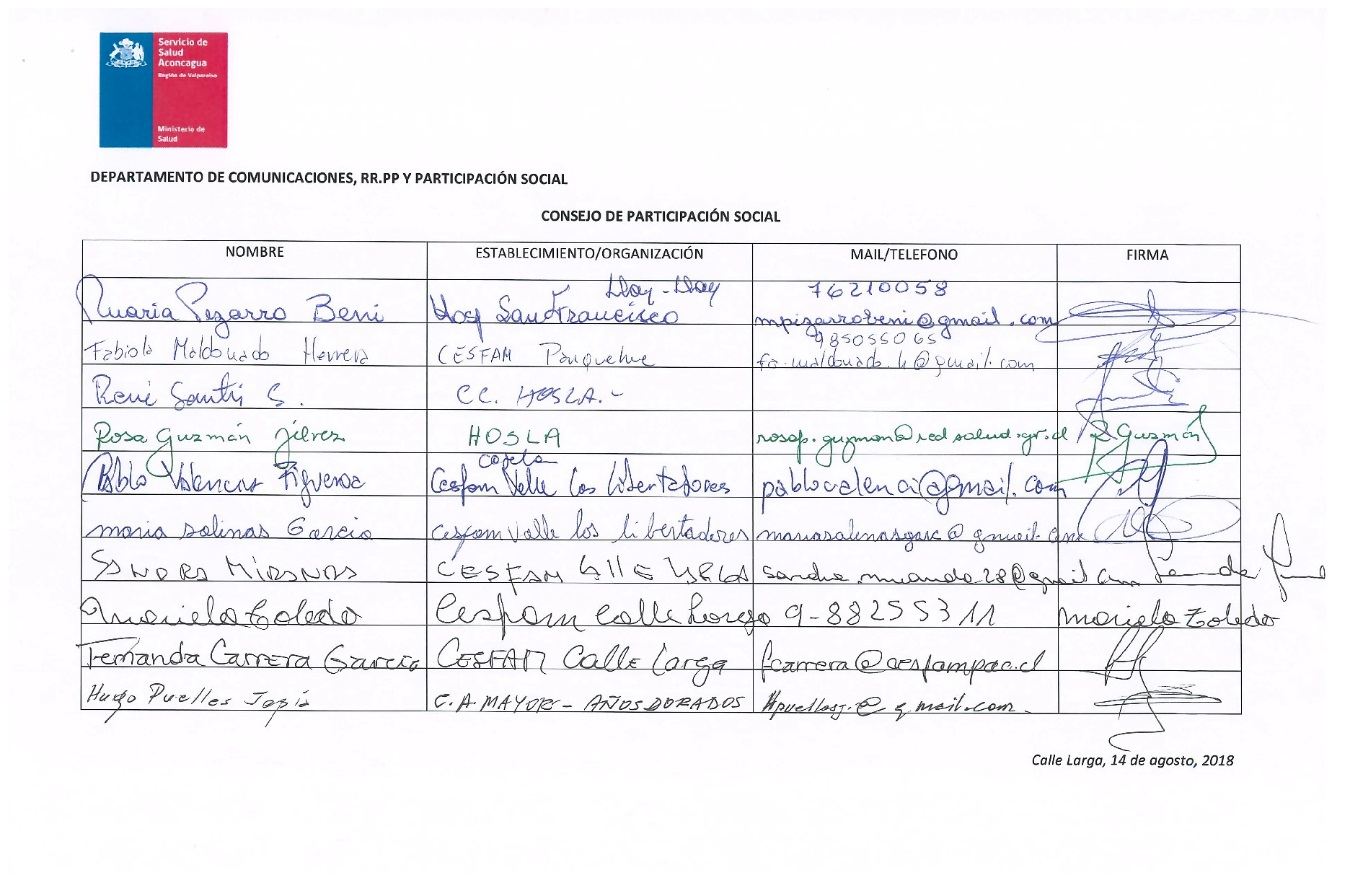 Servicio de
Salud
Aconcagua
Región de Valparaíso
Ministerio de
Salud
DEPARTAMENTO DE COMUNICACIONES, RR.PP Y PARTICIPACIÓN SOCIAL
CONSEJO DE PARTICIPACIÓN SOCIAL
NOMBRE ESTABLECIMIENTO/ORGANIZACIÓN MAIL/TELEFONO FIRMA
Maria Pizarro Beni Hosp San Francisco Llay-Llay 76210058 mpizarrobeni@gmail.com
Fabiola Maldonado Herrera CESFAM Panquehue 985055065 fa.maldonado.h@gmail.com
René S. CC. HOSLA.-
Rosa Guzmán HOSLA rosap.guzman@redsalud.gob.cl R Guzmán
Pablo Valencia Figueroa Cesfam Valle Los Libertadores pablovalenci@gmail.com
maria salinas Garcia cesfam Valle los libertadores mariasalinasgarc@gmail.com
SANDRA MIRANDA CESFAM CALLE LARGA sandra.miranda28@gmail.com
Mariela Toledo Cesfam Calle Larga 9-88255311 Mariela Toledo
Fernanda Carrera García CESFAM Calle Larga fcarrera@cesfampac.cl
Hugo Puelles Tapia C.A. MAYOR - AÑOS DORADOS Hpuellesj.@gmail.com.
Calle Larga, 14 de agosto, 2018